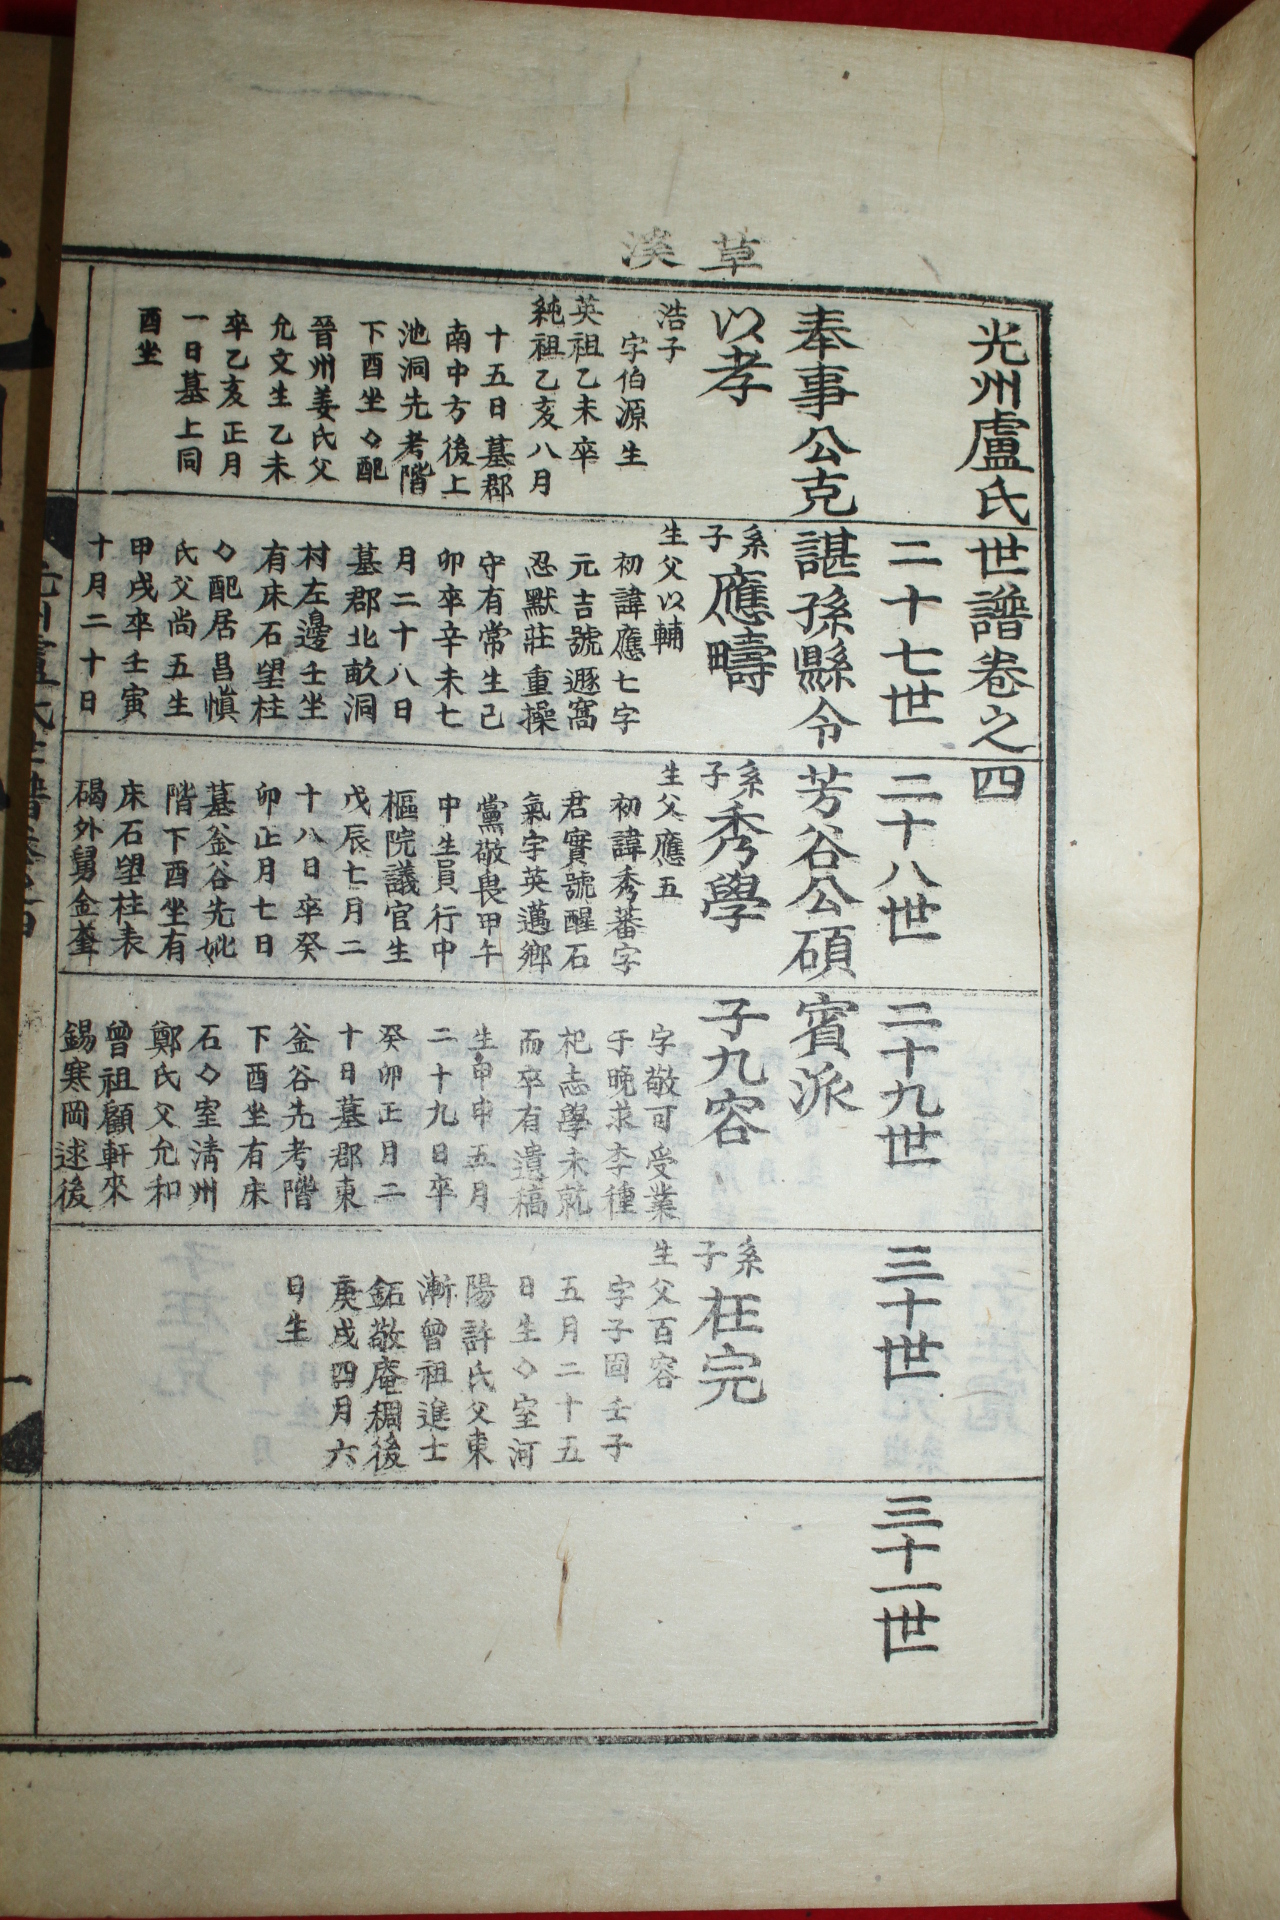 草溪
光州盧氏世譜卷之四
二十七世
二十八世
二十九世
三十世
三十一世
奉事公克諶孫縣令芳谷公碩賓派
以孝
浩子
字伯源生
英祖乙未卒
純祖乙亥八月
十五日墓郡
南中方後上
池洞先考階
下酉坐◇配
晉州姜氏父
允文生乙未
卒乙亥正月
一日墓上同
酉坐
系子應疇
生父以輔
初諱應七字
元吉號遯窩
忍默莊重操
守有常生己
卯卒辛未七
月二十八日
墓郡北畝洞
村左邊壬坐
有床石望柱
◇配居昌愼
氏父尚五生
甲戌卒壬寅
十月二十日
系子秀學
生父應五
初諱秀蕃字
君實號醒石
氣宇英邁鄉
黨敬畏甲午
中生員行中
樞院議官生
戊辰七月二
十八日卒癸
卯正月七日
墓釜谷先妣
階下酉坐有
床石望柱表
碣外舅金
子九容
字敬可受業
于晚求李種
杞志學未就
而卒有遺稿
生甲申五月
二十九日卒
癸卯正月二
十日墓郡東
釜谷先考階
下酉坐有床
石◇室淸州
鄭氏父允和
曾祖顧軒來
錫寒岡逑後
系子枉完
生父百容
字子圖壬子
五月二十五
日生◇室河
陽許氏父東
漸曾祖進士
鉐敬庵稠後
庚戌四月六
日生
光州盧氏世譜卷之四
一